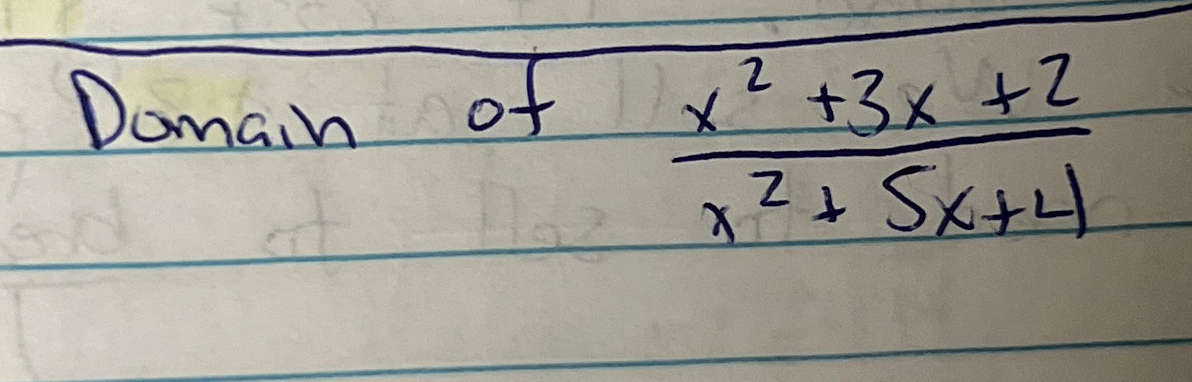 Domain of x² + 3x + 2 / x² + 5x + 4